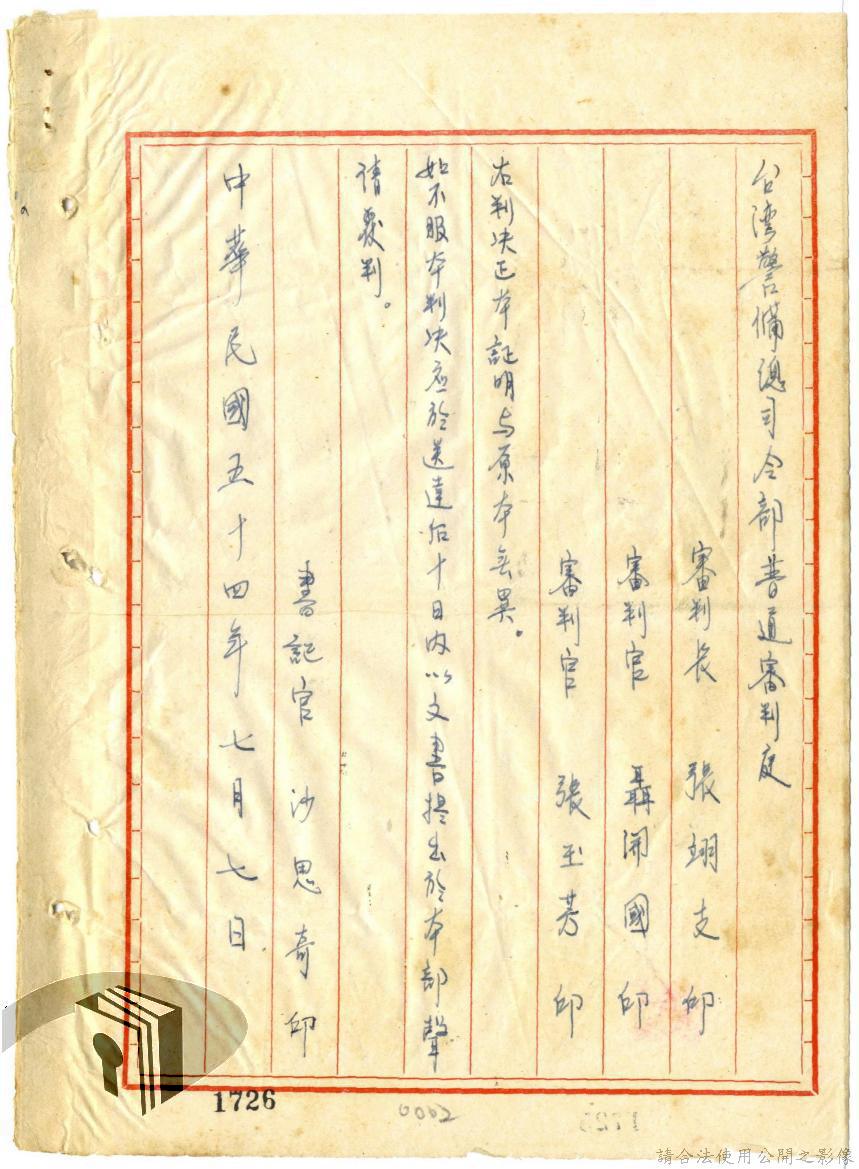 台湾警備總司令部普通審判庭
審判长 張翊支 印
審判官 聶開國 印
審判官 張玉芳 印
右判决正本証明与原本無異。
如不服本判决应於送達后十日内以文書提出於本部聲
请覆判。
書記官 沙思奇 印
中華民國五十四年七月七日
1726
0002
請合法使用公開之影像